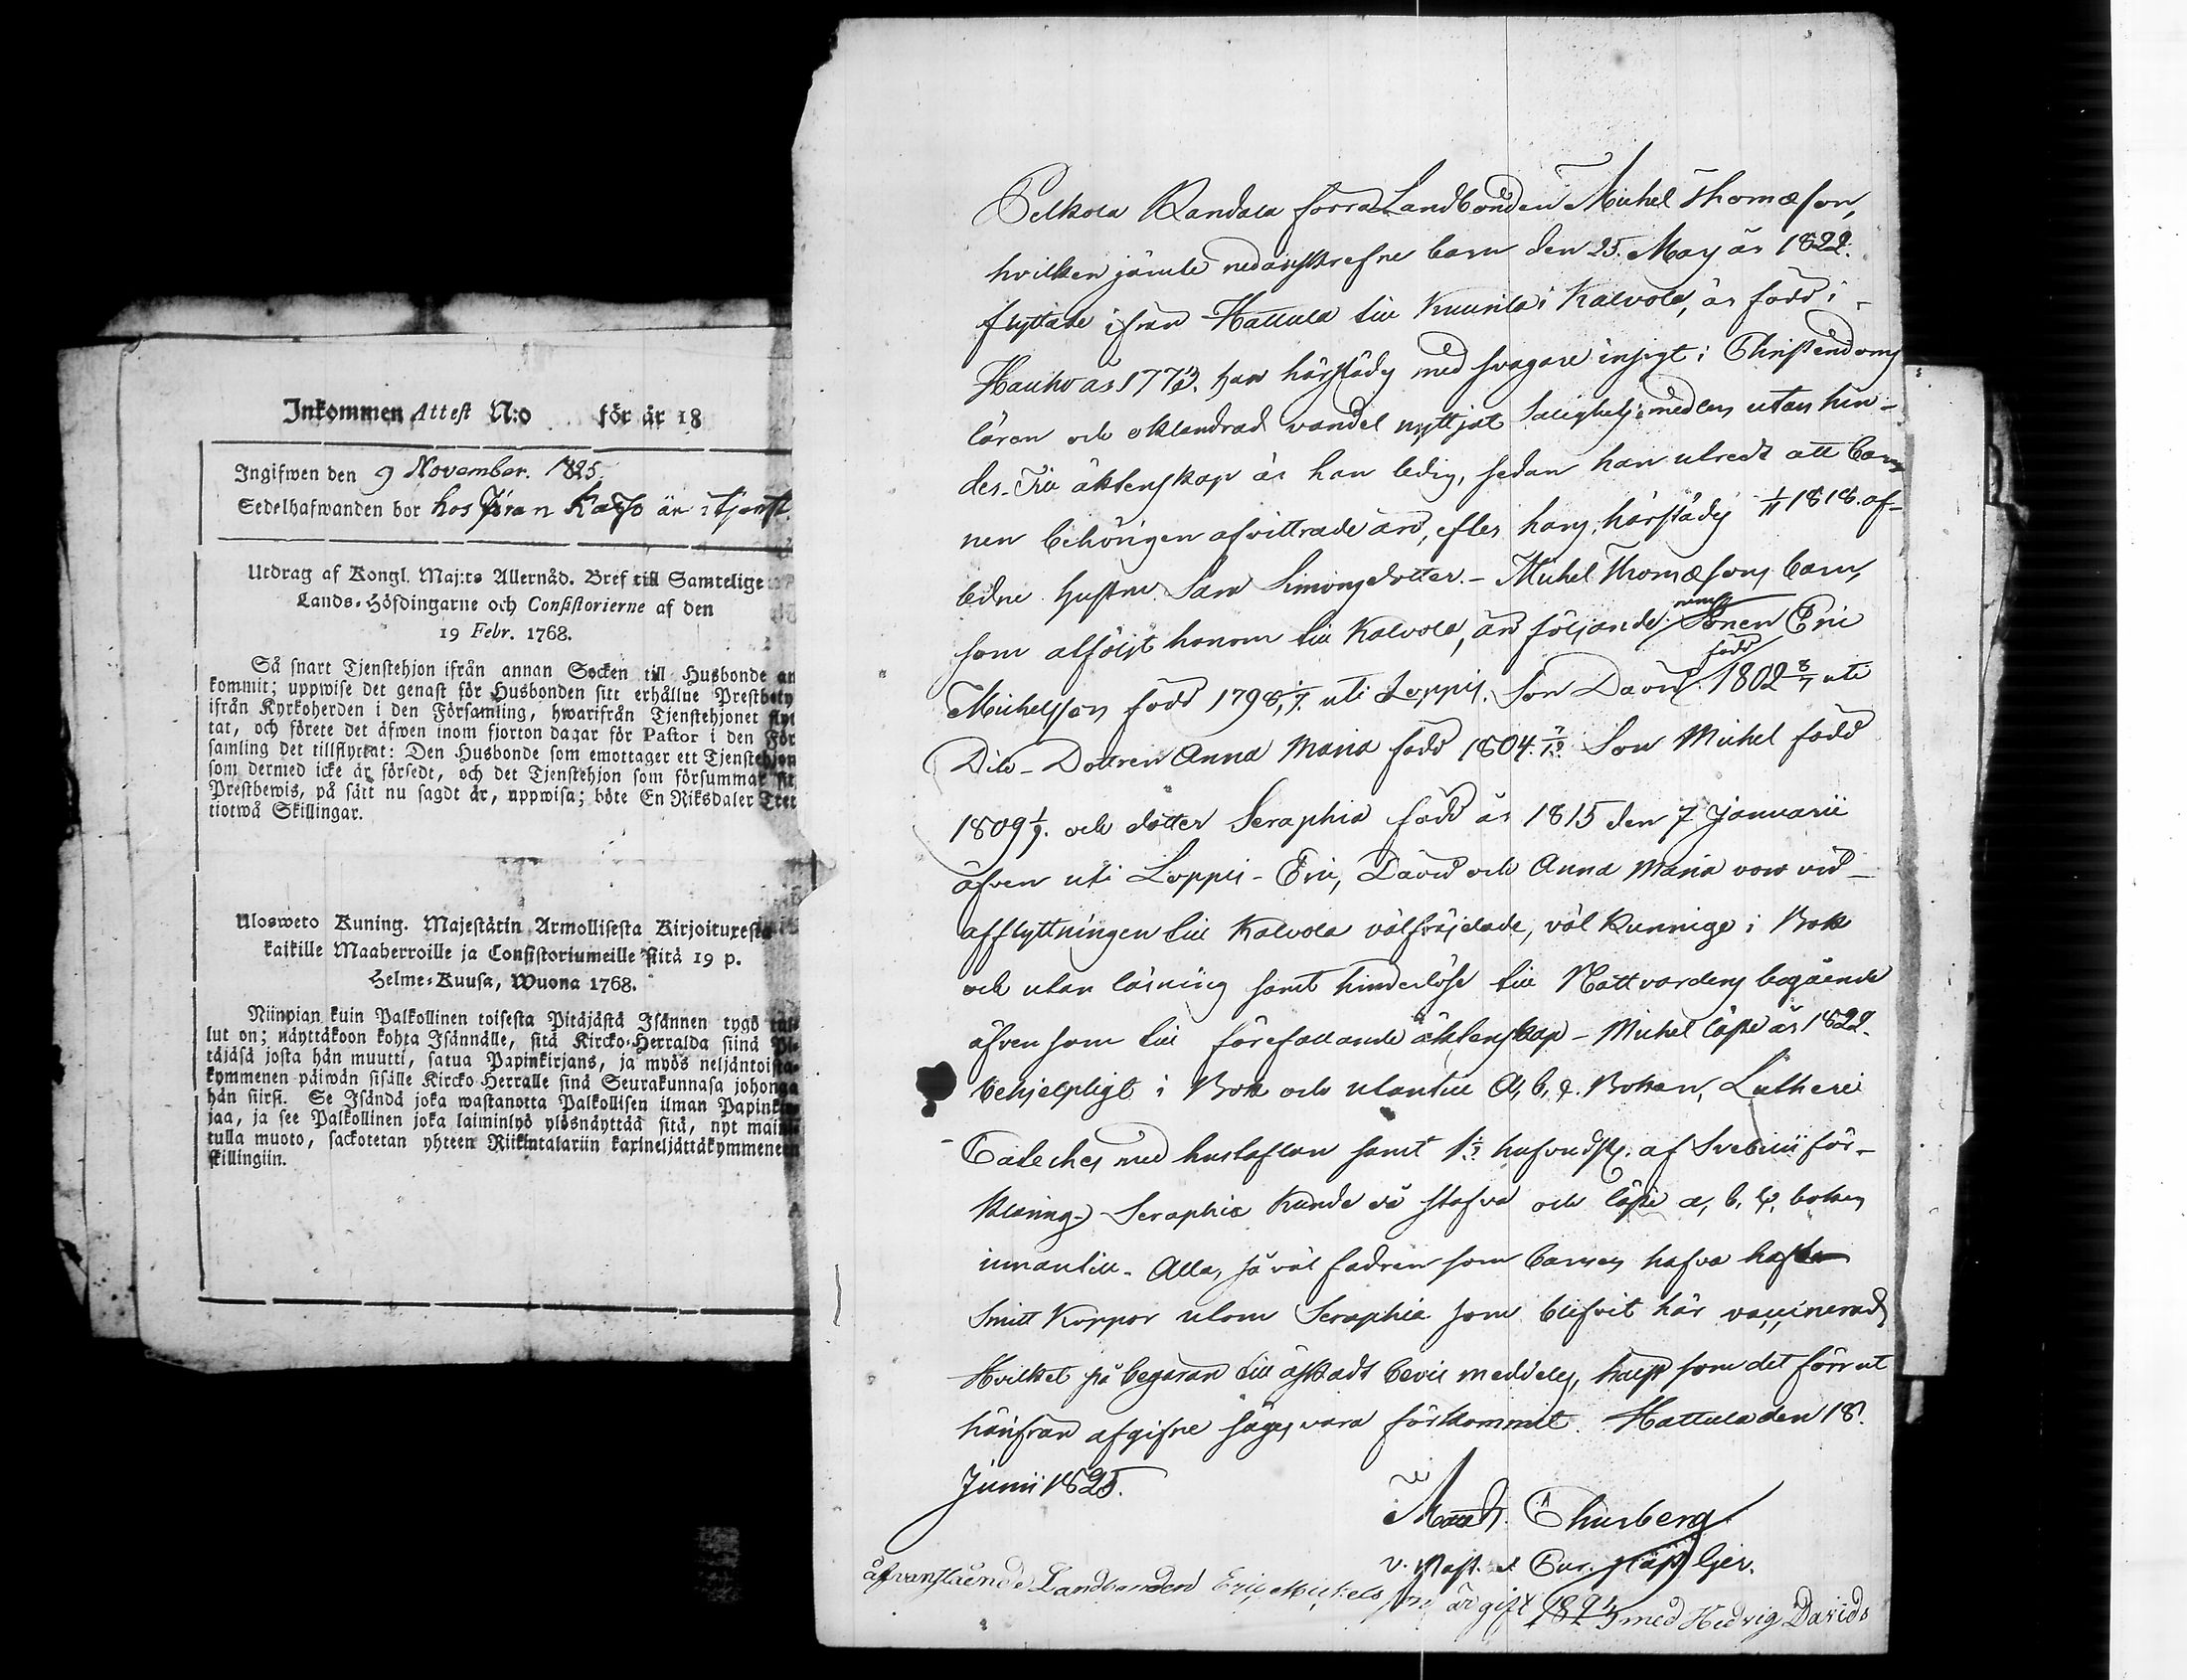 Inkommen Attest N:o för år 18
Ingifwen den 9 November. 1825.
Sedelhafwanden bor hos Jöran är i tjenst.
Utdrag af Kongl. Maj:ts Allernåd. Bref till Samtelige
Lands-Höfdingarne och Consistorierne af den
19 Febr. 1768.
Så snart Tjenstehjon ifrån annan Socken till Husbonde an
kommit; uppwise det genast för Husbonden sitt erhållne Prestbety
ifrån Kyrkoherden i den Församling, hwarifrån Tjenstehjonet flyt
tat, och förete det äfwen inom fjorton dagar för Pastor i den För
samling det tillflyttat: Den Husbonde som emottager ett Tjenstehjon
som dermed icke är försedt, och det Tjenstehjon som försummar sit
Prestbewis, på sätt nu sagdt är, uppwisa; böte En Riksdaler Tret
tiotwå Skillingar.
Ulosweto Kuning. Majestätin Armollisesta Kirjoituxesta
kaikille Maaherroille ja Consistoriumeille sitä 19 p.
Helme-Kuusa, Wuona 1768.
Niinpian kuin Palkollinen toisesta Pitäjästä Isännen tygö tul-
lut on; näyttäkoon kohta Isännälle, sitä Kircko-Herralda siinä Pi-
täjäsä josta hän muutti, saatua Papinkirjans, ja myös neljäntoista-
kymmenen päiwän sisälle Kircko Herralle siinä Seurakunnasa johonga
hän siirsi. Se Isändä joka wastanotta Palkollisen ilman Papinkir
jaa, ja see Palkollinen joka laiminlyö ylösnäyttää sitä, nyt maini
tulla muoto, sackotetan yhteen Riikintalariin kaxineljättäkymmeneen
skillingiin.
Pelkola Randala förra Landbonden Michel Thomæson,
hvilken jämte nedanskrefne barn den 25. May år 1822.
flyttade ifrån Hattula till Kuurila i Kalvola, är född i
Hauho år 1773. har härstädes med svagare insigt i Christendoms
läran och oklandrad vandel nyttjat Salighetsmedlen utan hin-
der. Till äktenskap är han ledig, sedan han utredt att bar-
nen behörigen afvittrade äro, efter hans härstädes 1818. af-
ledne hustru Sara Simonsdotter. - Michel Thomæsons barn,
som åtföljt honom till Kalvola, äro följande: neml. Sonen Eric
Michelsson född 1798, uti Loppis. Son David född 1802 8/7 uti
Dito - Dottren Anna Maria född 1804. Son Michel född
1809 1/9. och dotter Seraphia född år 1815 den 7 Januarii
äfven uti Loppis - Eric, David och Anna Maria voro vid
afflyttningen till Kalvola välfräjdade, väl kunnige i Bok
och utan läsning samt hinderlöse till Nattvardens begående
äfven som till förefallande äktenskap - Michel läste år 1822.
behjelpligt i Bok och utantill A, b, c. Boken, Lutheri
Cateches med hustaflan samt 1 1/2 hufvudst. af Svebilii för-
klaring - Seraphia kunde då stafva och läste a, b, c, boken
innantill. Alla, så väl fadren som barnen hafva haft
Smitt Koppor utom Seraphia som blifvit här vaccinerad,
Hvilket på begäran till åstadt bevis meddeles, helst som det förrut
härifrån afgifne säges vara förkommit. Hattula den 18.
Junii 1825.
Math. Thurberg
v. Past. Ger.
åfvanstående Landbonden Eric Mickels son är gift med Hedvig Davids